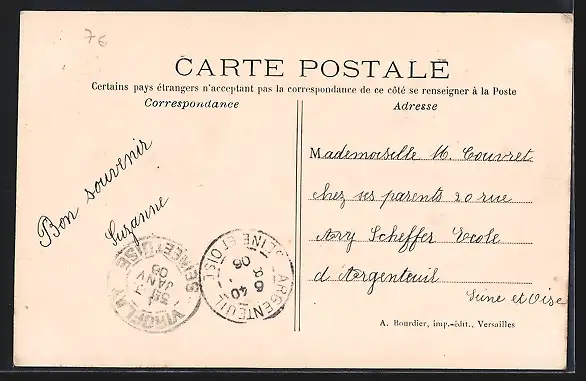 76
CARTE POSTALE
Certains pays étrangers n'acceptant pas la correspondance de ce côté se renseigner à la Poste
Correspondance
Adresse
Bon souvenir
Suzanne
Mademoiselle M. Couvret
chez ses parents 20 rue
Ary Scheffer Ecole
d'Argenteuil
Seine et Oise
VIROFLAY
SEINE ET OISE
7
JANV
08
ARGENTEUIL
SEINE ET OISE
6 40
08
A. Bourdier, imp.-édit., Versailles